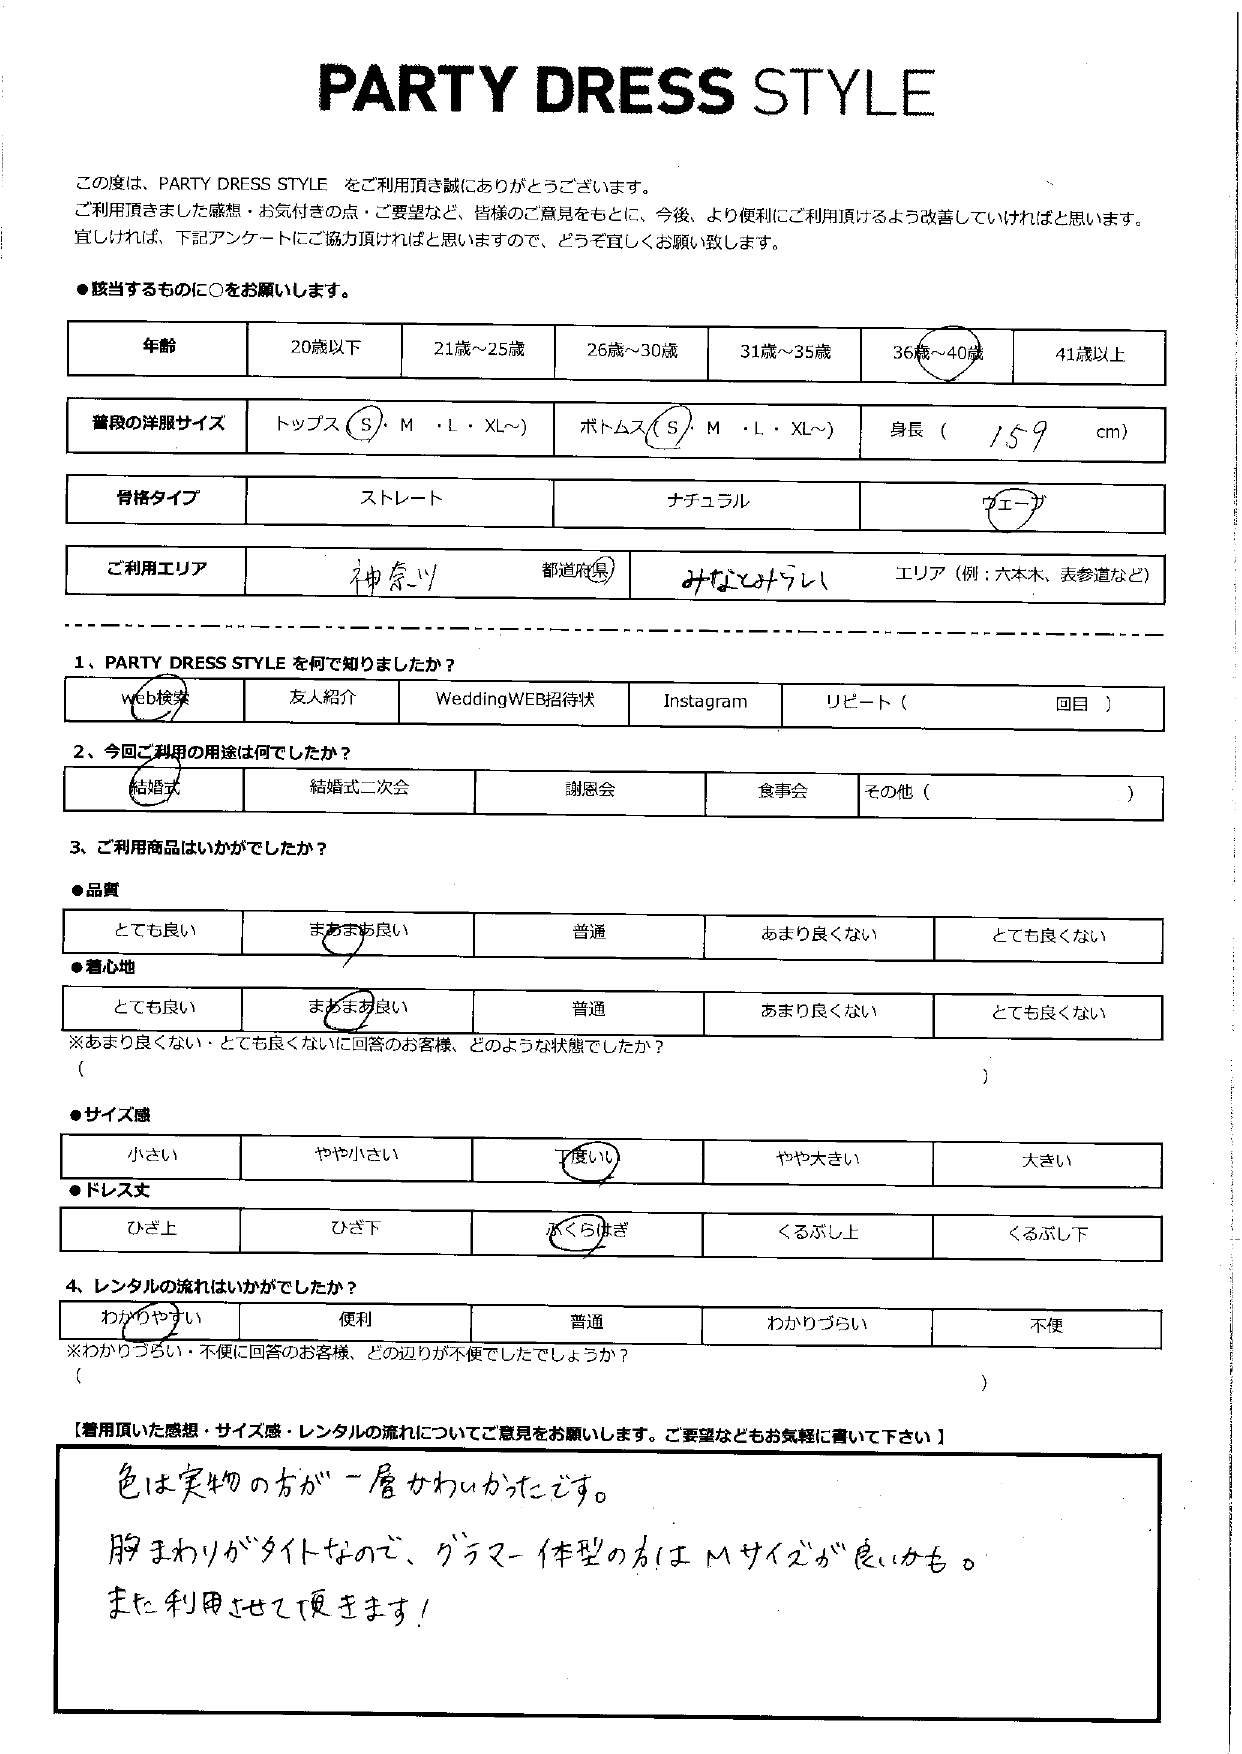 PARTY DRESS STYLE
この度は、PARTY DRESS STYLE をご利用頂き誠にありがとうございます。
ご利用頂きました感想・お気付きの点・ご要望など、皆様のご意見をもとに、今後、より便利にご利用頂けるよう改善していければと思います。
宜しければ、下記アンケートにご協力頂ければと思いますので、どうぞ宜しくお願い致します。
●該当するものに○をお願いします。
年齢 20歳以下 21歳～25歳 26歳～30歳 31歳～35歳 36歳～40歳 41歳以上
普段の洋服サイズ トップス(S・M ・L・XL～) ボトムス(S・M ・L・XL～) 身長 ( 159 cm)
骨格タイプ ストレート ナチュラル ウェーブ
ご利用エリア 神奈川 都道府県 みなとみらい エリア（例：六本木、表参道など）
1、PARTY DRESS STYLE を何で知りましたか？
web検索 友人紹介 WeddingWEB招待状 Instagram リピート（ 回目 ）
2、今回ご利用の用途は何でしたか？
結婚式 結婚式二次会 謝恩会 食事会 その他（ ）
3、ご利用商品はいかがでしたか？
●品質
とても良い まあまあ良い 普通 あまり良くない とても良くない
●着心地
とても良い まあまあ良い 普通 あまり良くない とても良くない
※あまり良くない・とても良くないに回答のお客様、どのような状態でしたか？
（ ）
●サイズ感
小さい やや小さい 丁度いい やや大きい 大きい
●ドレス丈
ひざ上 ひざ下 ふくらはぎ くるぶし上 くるぶし下
4、レンタルの流れはいかがでしたか？
わかりやすい 便利 普通 わかりづらい 不便
※わかりづらい・不便に回答のお客様、どの辺りが不便でしたでしょうか？
（ ）
【着用頂いた感想・サイズ感・レンタルの流れについてご意見をお願いします。ご要望などもお気軽に書いて下さい】
色は実物の方が一層かわいかったです。
胸まわりがタイトなので、グラマー体型の方はMサイズが良いかも。
また利用させて頂きます!